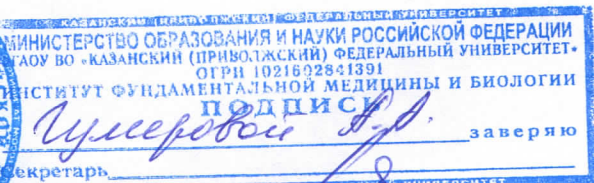 КАЗАНСКИЙ (ПРИВОЛЖСКИЙ) ФЕДЕРАЛЬНЫЙ УНИВЕРСИТЕТ
МИНИСТЕРСТВО ОБРАЗОВАНИЯ И НАУКИ РОССИЙСКОЙ ФЕДЕРАЦИИ
ГАОУ ВО «КАЗАНСКИЙ (ПРИВОЛЖСКИЙ) ФЕДЕРАЛЬНЫЙ УНИВЕРСИТЕТ»
ОГРН 1021602841391
ИНСТИТУТ ФУНДАМЕНТАЛЬНОЙ МЕДИЦИНЫ И БИОЛОГИИ
ПОДПИСЬ
Гумеровой А.А. заверяю
Секретарь
УНИВЕРСИТЕТ